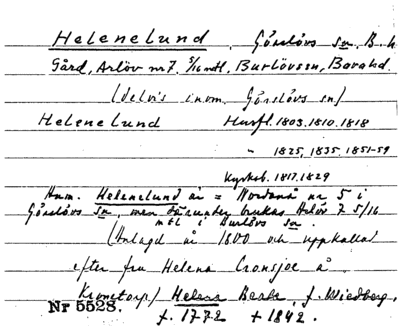 Helenelund. Görslövs sn, B. h
Gård, Arlöv nr 7. 5/16 mtl, Burlövs sn, Bara hd.
(delvis inom Görslövs sn)
Helenelund Husfl. 1803. 1810. 1818
" 1825, 1835, 1851-59
Kyrkob. 1817. 1829
Anm. Helenelund är = Nordanå nr 5 i
Görslövs sn, men därunder brukas Arlöv 7 5/16
mtl i Burlövs sn.
(Anlagd år 1800 och uppkallad
efter fru Helena Cronsjoe å
Kronetorp) Helena Beate, f. Wiedberg,
Nr 5528.
f. 1772 + 1842.